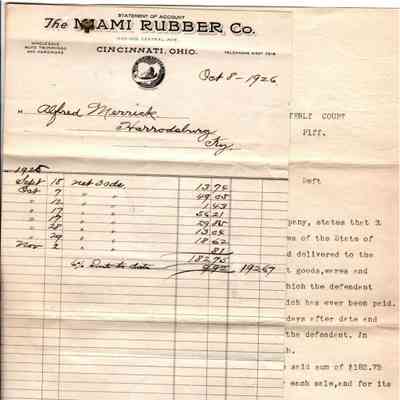 STATEMENT OF ACCOUNT
The MIAMI RUBBER Co.
CENTRAL AVE
WHOLESALE
AUTO TRIMMINGS
AND HARDWARE
CINCINNATI, OHIO.
TELEPHONE WEST
Oct 8 - 1926
Alfred Merrick
Harrodsburg
Ky.
1925
Sept 18 net 30 ds. 13.74
Oct 7 " " 49.05
" 12 " " 1.43
" 17 " " 56.21
" " " 29.85
" 28 " " 13.04
" 29 " " 18.62
Nov 2 " " .81
182.75
6% Int to date 9.92 192.67
TERLY COURT
PLFF.
Deft
pany, states that
ws of the State of
d delivered to the
t goods, wares and
hich the defendent
ich has ever been paid.
days after date and
the defendent. In
h.
said sum of $182.75
each sale, and for its